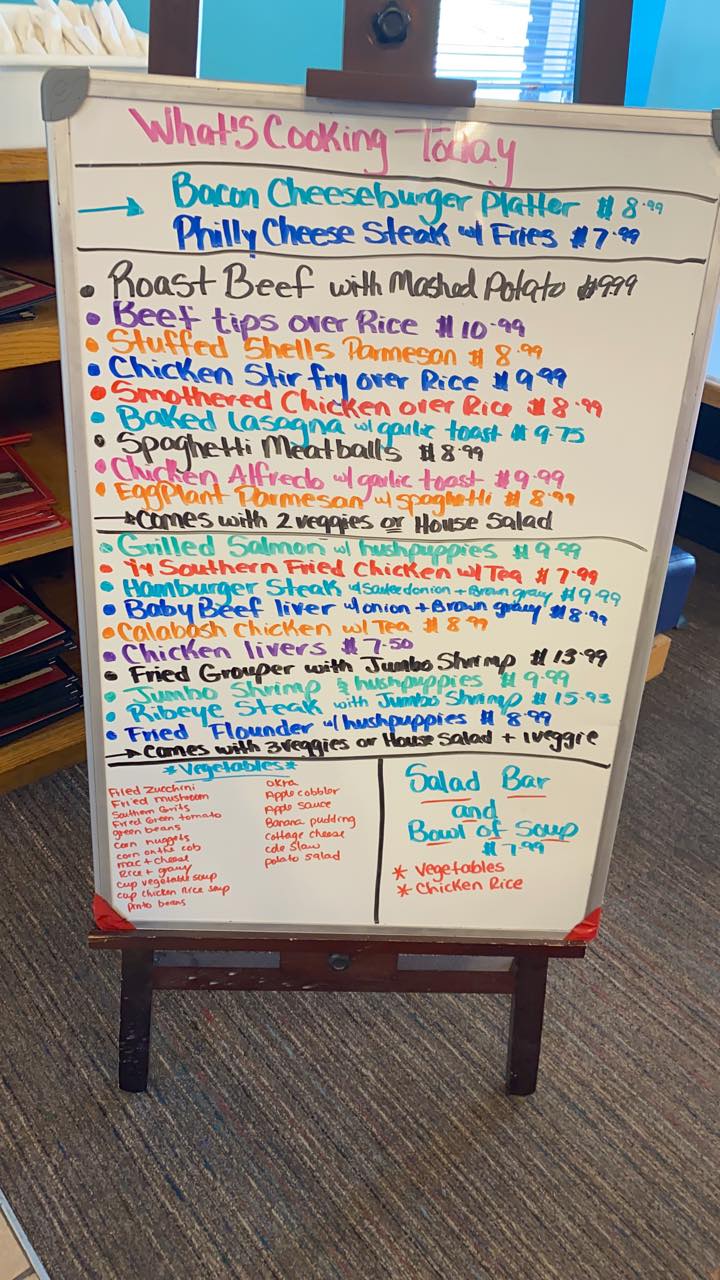 What's Cooking Today
→ Bacon Cheeseburger Platter $8.99
Philly Cheese Steak w/ Fries $7.99
• Roast Beef with Mashed Potato $9.99
• Beef tips over Rice $10.99
• Stuffed Shells Parmesan $8.99
• Chicken Stir fry over Rice $9.99
• Smothered Chicken over Rice $8.99
• Baked lasagna w/ garlic toast $9.75
• Spaghetti Meatballs $8.99
• Chicken Alfredo w/ garlic toast $9.99
• EggPlant Parmesan w/ spaghetti $8.99
→ Comes with 2 veggies or House Salad
• Grilled Salmon w/ hushpuppies $9.99
• 1/4 Southern Fried Chicken w/ Tea $7.99
• Hamburger Steak w/ Sauteed onion + Brown gravy $9.99
• Baby Beef liver w/ onion + Brown gravy $8.99
• Calabash Chicken w/ Tea $8.99
• Chicken livers $7.50
• Fried Grouper with Jumbo Shrimp $13.99
• Jumbo Shrimp & hushpuppies $9.99
• Ribeye Steak with Jumbo Shrimp $15.93
• Fried Flounder w/ hushpuppies $8.99
→ Comes with 3 veggies or House Salad + 1 veggie
*Vegetables*
Fried Zucchini
Fried mushroom
Southern Grits
Fried Green tomato
green beans
corn nuggets
corn on the cob
mac + cheese
Rice + gravy
cup vegetable soup
cup chicken rice soup
pinto beans
okra
Apple cobbler
Apple sauce
Banana pudding
cottage cheese
cole slaw
potato salad
Salad Bar
and
Bowl of Soup
$7.99
* Vegetables
* Chicken Rice